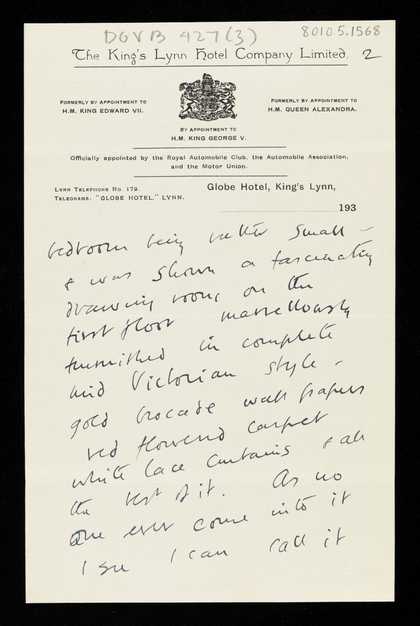 DGVB 427(3)
80105.1568
The King's Lynn Hotel Company Limited,
2
FORMERLY BY APPOINTMENT TO
H.M. KING EDWARD VII.
FORMERLY BY APPOINTMENT TO
H.M. QUEEN ALEXANDRA.
BY APPOINTMENT TO
H.M. KING GEORGE V.
Officially appointed by the Royal Automobile Club, the Automobile Association,
and the Motor Union.
LYNN TELEPHONE NO. 179.
TELEGRAMS: "GLOBE HOTEL," LYNN.
Globe Hotel, King's Lynn,
193
bedroom being rather small –
& was shown a fascinating
drawing room, on the
first floor marvellously
furnished in complete
mid Victorian style –
gold brocade wall papers
red flowered carpet
white lace curtains & all
the rest of it. As no
one ever came into it
I see I can call it